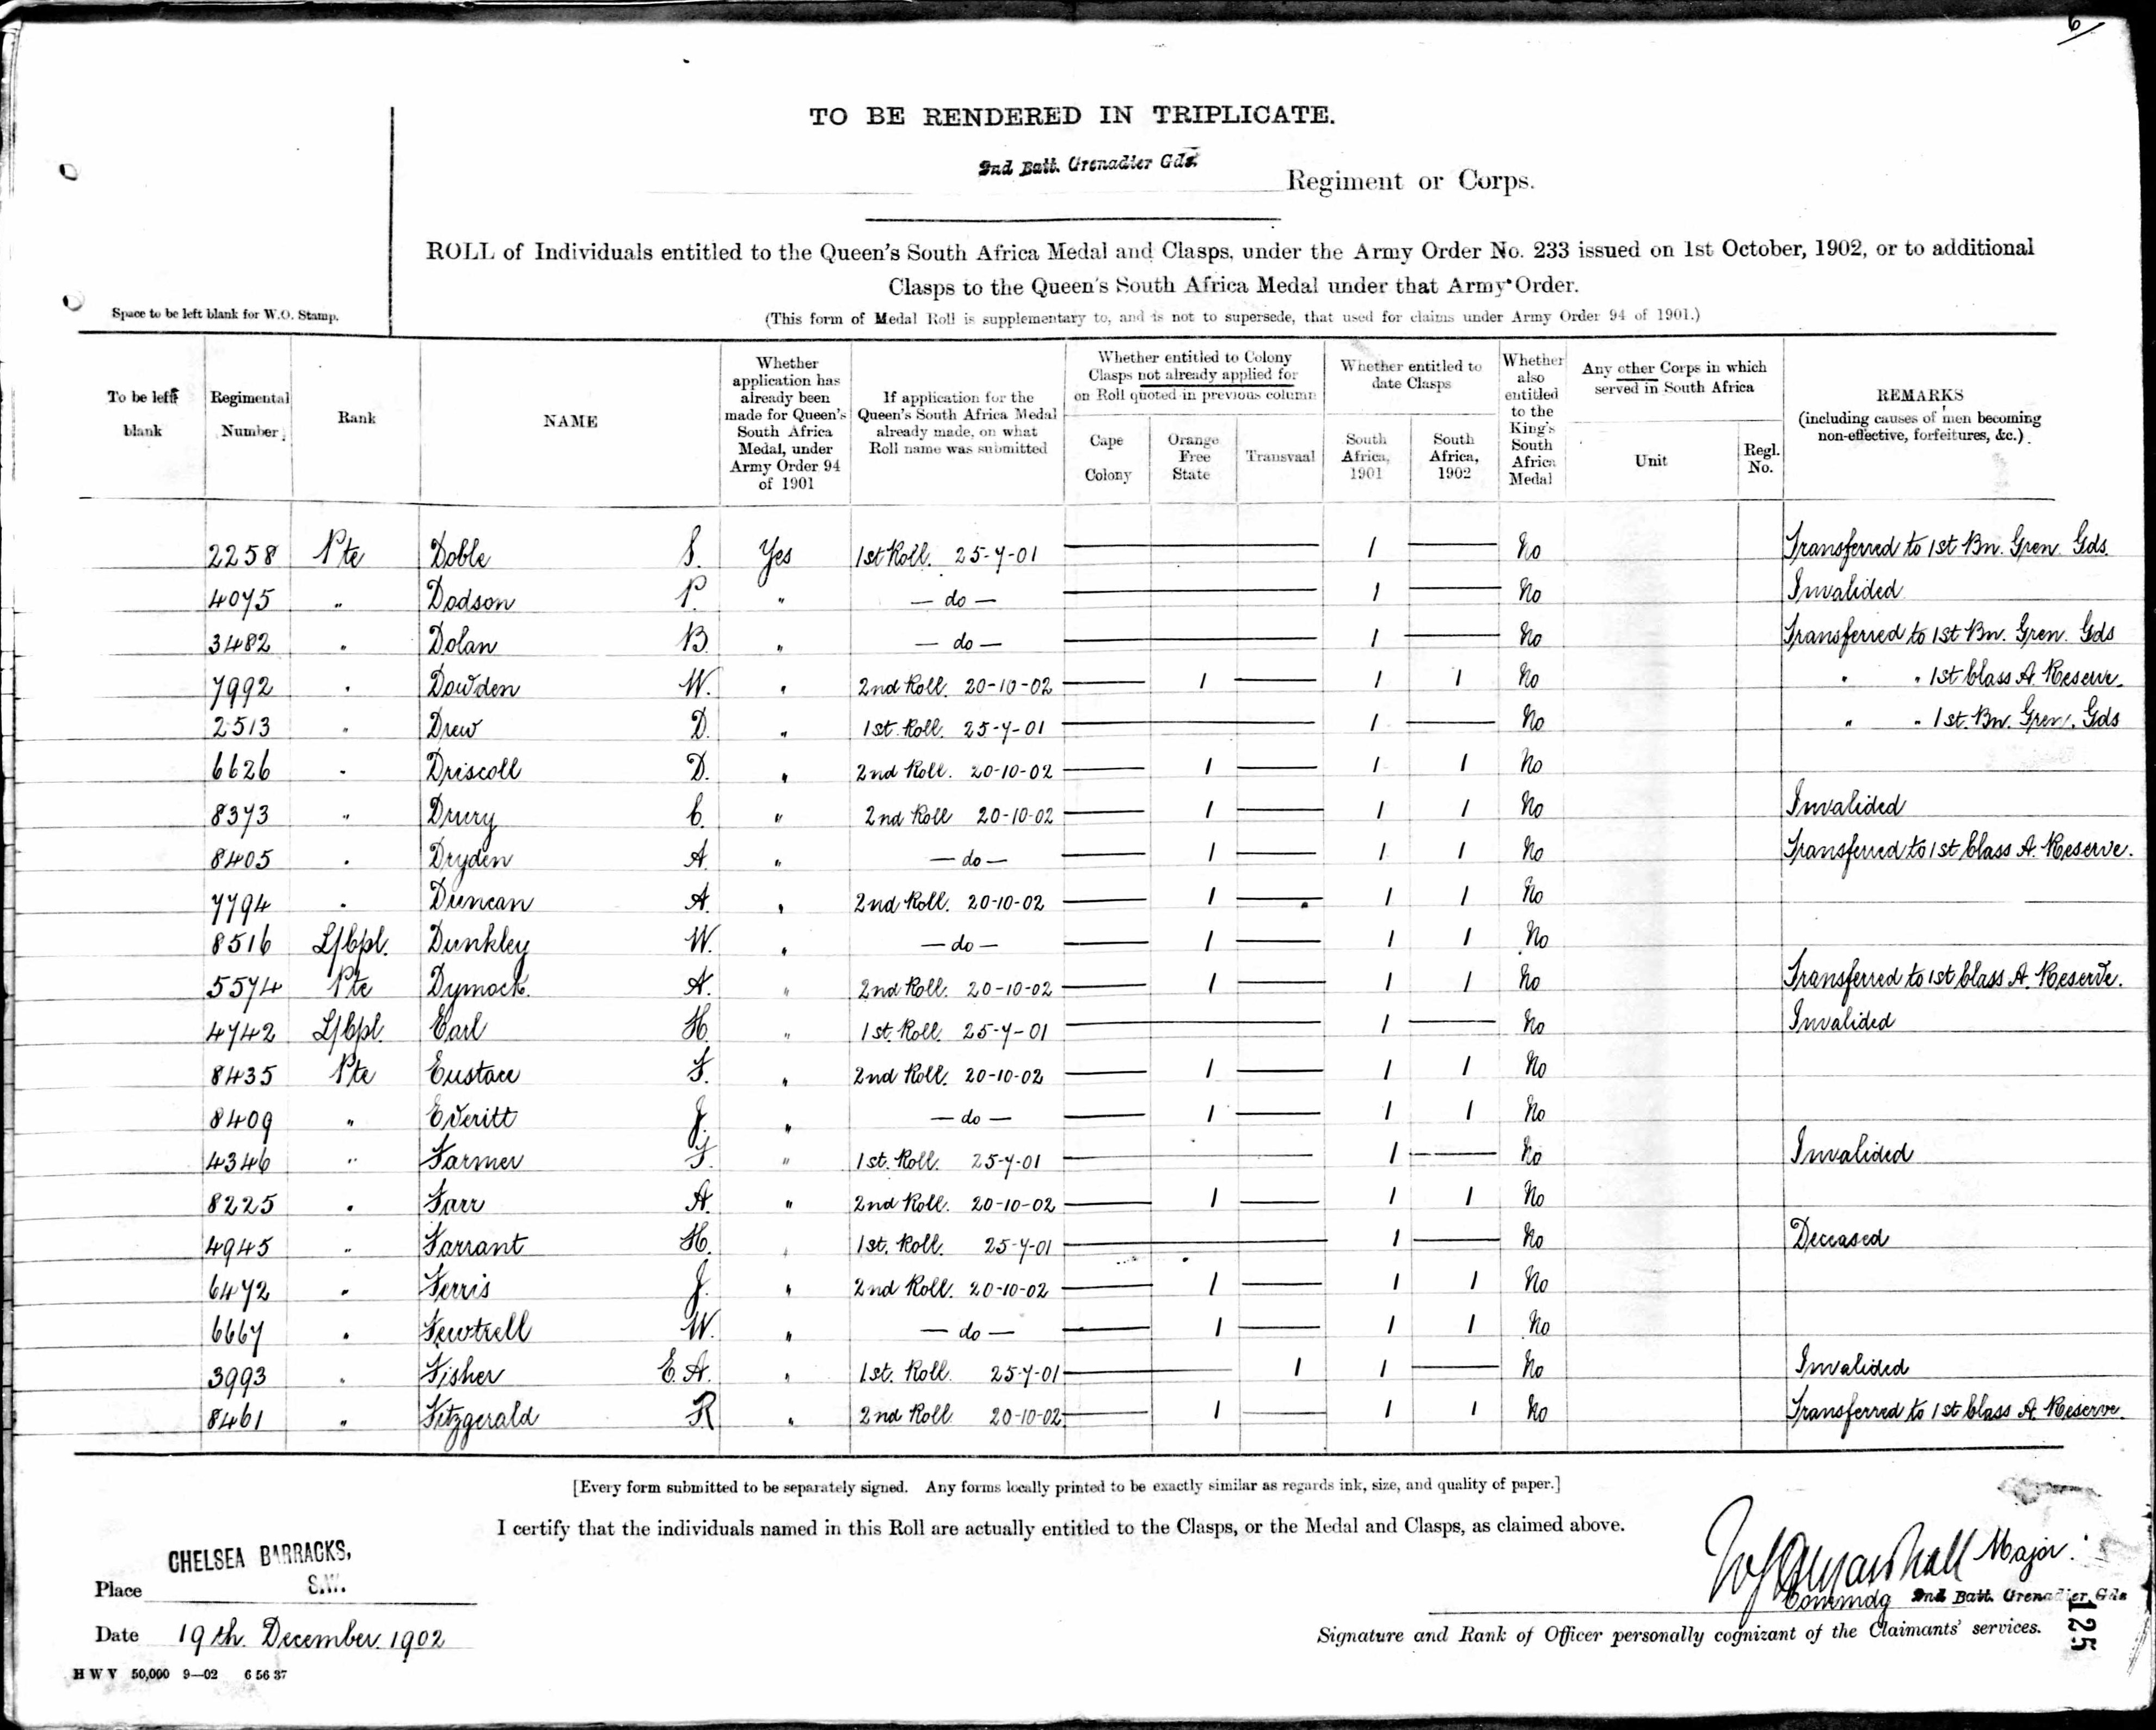 6/
TO BE RENDERED IN TRIPLICATE.
2nd Batt. Grenadier Gds. Regiment or Corps.
ROLL of Individuals entitled to the Queen's South Africa Medal and Clasps, under the Army Order No. 233 issued on 1st October, 1902, or to additional
Clasps to the Queen's South Africa Medal under that Army Order.
(This form of Medal Roll is supplementary to, and is not to supersede, that used for claims under Army Order 94 of 1901.)
Space to be left blank for W.O. Stamp.
To be left blank
Regimental Number
Rank
NAME
Whether application has already been made for Queen's South Africa Medal, under Army Order 94 of 1901
If application for the Queen's South Africa Medal already made, on what Roll name was submitted
Whether entitled to Colony Clasps not already applied for on Roll quoted in previous column
Cape Colony
Orange Free State
Transvaal
Whether entitled to date Clasps
South Africa, 1901
South Africa, 1902
Whether also entitled to the King's South Africa Medal
Any other Corps in which served in South Africa
Unit
Regl. No.
REMARKS
(including causes of men becoming non-effective, forfeitures, &c.)
2258 Pte Doble S. Yes 1st Roll. 25-7-01 — 1 — No Transferred to 1st Bn. Gren. Gds.
4075 " Dodson P. " — do — — 1 — No Invalided
3482 " Dolan B. " — do — — 1 — No Transferred to 1st Bn. Gren. Gds
7992 " Dowden W. " 2nd Roll. 20-10-02 — 1 — 1 1 No " " 1st Class A. Reserve.
2513 " Drew D. " 1st Roll. 25-7-01 — 1 — No " " 1st. Bn. Gren. Gds
6626 " Driscoll D. " 2nd Roll. 20-10-02 — 1 — 1 1 No
8373 " Drury C. " 2nd Roll 20-10-02 — 1 — 1 1 No Invalided
8405 " Dryden A. " — do — — 1 — 1 1 No Transferred to 1st Class A. Reserve.
7794 " Duncan A. " 2nd Roll. 20-10-02 — 1 — 1 1 No
8516 L/Cpl. Dunkley W. " — do — — 1 — 1 1 No
5574 Pte Dymock. A. " 2nd Roll. 20-10-02 — 1 — 1 1 No Transferred to 1st Class A. Reserve.
4742 L/Cpl. Earl H. " 1st. Roll. 25-7-01 — 1 — No Invalided
8435 Pte Eustace F. " 2nd Roll. 20-10-02 — 1 — 1 1 No
8409 " Everitt J. " — do — — 1 — 1 1 No
4346 " Farmer F. " 1st. Roll. 25-7-01 — 1 — No Invalided
8225 " Farr A. " 2nd Roll. 20-10-02 — 1 — 1 1 No
4945 " Farrant H. " 1st. Roll. 25-7-01 — 1 — No Deceased
6472 " Ferris J. " 2nd Roll. 20-10-02 — 1 — 1 1 No
6667 " Fewtrell W. " — do — — 1 — 1 1 No
3993 " Fisher E. A. " 1st. Roll. 25-7-01 — 1 1 — No Invalided
8461 " Fitzgerald R " 2nd Roll. 20-10-02 — 1 — 1 1 No Transferred to 1st Class A. Reserve.
[Every form submitted to be separately signed. Any forms locally printed to be exactly similar as regards ink, size, and quality of paper.]
I certify that the individuals named in this Roll are actually entitled to the Clasps, or the Medal and Clasps, as claimed above.
Place CHELSEA BARRACKS, S.W.
Date 19th. December. 1902
Marshall Major.
Commdg 2nd Batt. Grenadier Gds
Signature and Rank of Officer personally cognizant of the Claimants' services.
125
H W V 50,000 9—02 6 56 37